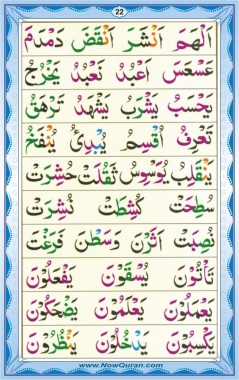 22
اَلْهَمَ اَنْشَرَ اَنْقَضَ دَمْدَمَ
عَسْعَسَ اَعْبُدُ نَعْبُدُ يَخْرُجُ
يَحْسَبُ يَشْرَبُ يَشْهَدُ تَرْهَقُ
تَعْرِفُ اُقْسِمُ يُبْدِئُ يُنْفَخُ
يَنْقَلِبُ يُوَسْوِسُ ثَقُلَتْ حُشِرَتْ
سُطِحَتْ كُشِطَتْ نُشِرَتْ
نُصِبَتْ اَثَرْنَ وَسَطْنَ فَرَغْتَ
تَاْتُوْنَ يُسْقَوْنَ يَفْعَلُوْنَ
يَعْمَلُوْنَ يَعْلَمُوْنَ يَضْحَكُوْنَ
يَكْسِبُوْنَ يَدْخُلُوْنَ يَنْظُرُوْنَ
www.NowQuran.com